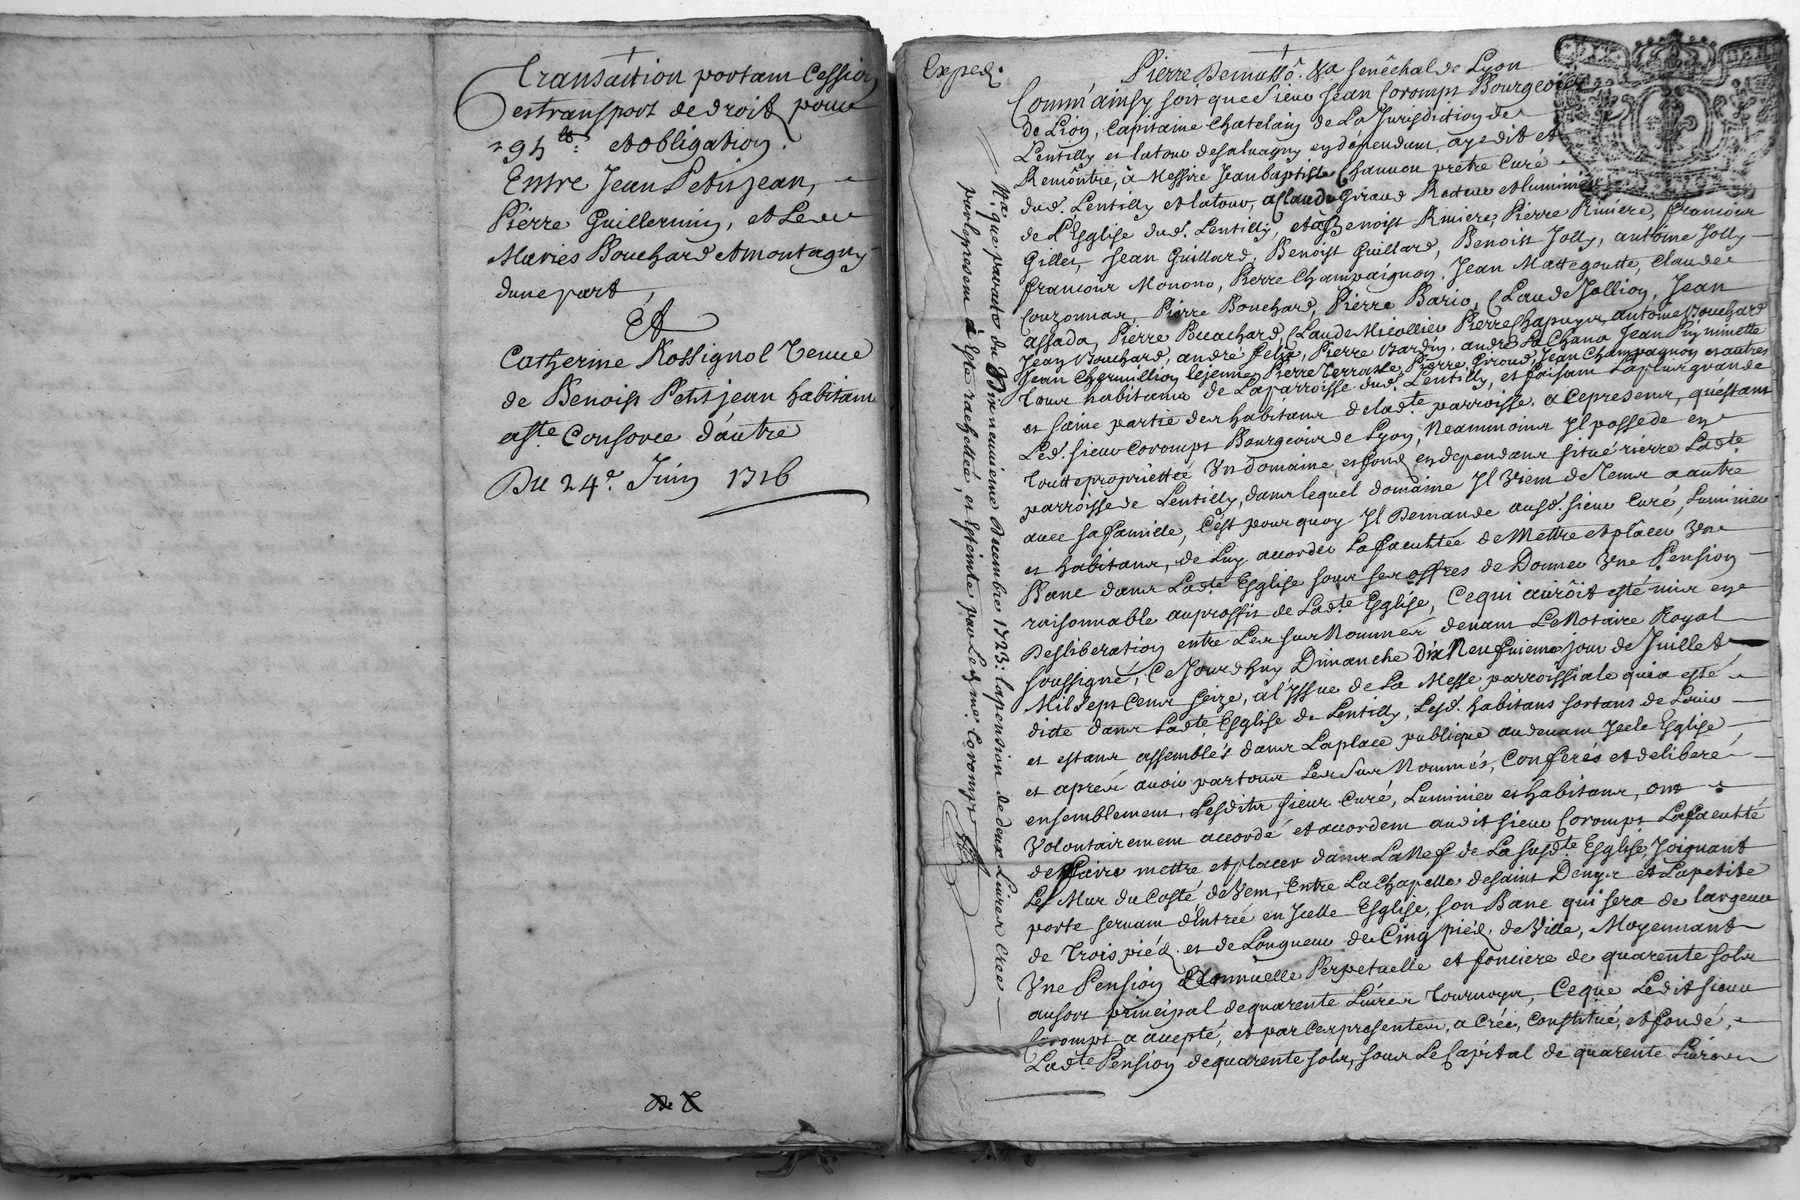 Transaction portant Cession
et transport de droit pour
95 lt. et obligation.
Entre Jean Petitjean,
Pierre Guillermin, et Leur
Maries Bouchard et montagny
dune part,
Et
Catherine Rossignol veuve
de Benoist Petitjean habitant
aste Consorce d'autre
Du 24e. Juin 1716
Exped.
Senêchal de Lyon
Comm'ainsy soit que Sieur Jean Corompt Bourgeois
de Lion, Capitaine Chatelain de La Jurisdiction de
Lentilly et latour desalvagny en dépendant, aye dit et
Remôntré, à Messire Jean baptiste Chauuon prêtre Curé
dud. Lentilly et latour, a Claude Giraud Recteur et luminier
de L'Eglise dud. Lentilly, et à Benoist Riviere, Pierre Riviere, francois
Gilles, Jean Guillard, Benoist Guillard, Benoist Jolly, antoine Jolly
francois Monono, Pierre Champaignon, Jean Mattegoutte, Claude
Couzonnas, Pierre Bouchard, Pierre Bario, Claude Jollion, Jean
assada, Pierre Bouchard, Claude Micollier Pierre Chapuys, antoine Bouchard
Jean Bouchard, andré felix, Pierre Bardin, andre La Chana Jean
Jean Chermillion lejeune Pierre Terrasse, Pierre Giroud, Jean Champagnon et autres
tous habitants de La parroisse dud. Lentilly, et faisant La plus grande
et saine partie des habitans de lad.te parroisse a ce presens, qu'estant
Led. sieur Corompt Bourgeois de Lyon, Neammoins Il possede en
toutte propriettée Un domaine et fond en dependans situé rierre Lad.te
parroisse de Lentilly, dans lequel domaine Il Vient de Tems a autre
avec sa famille, C'est pourquoy Il Demande ausd. sieur Curé, Luminier
et habitans, de Luy accorder La facultée de Mettre et placer Une
Banc dans Lad.te Esglise sous ses offres de Donner Une Pension
raisonnable au proffit de Lad.te Esglise, Ce qui auroit esté mis en
Desliberation entre Les sus Nommés devant Le Notaire Royal
soussigné, Ce Jourdhuy Dimanche dix Neufvieme jour de Juillet
Mil Sept Cens seize, à l'Issue de La Messe parroissiale qui a esté
ditte dans Lad.te Esglise de Lentilly, Lesd. habitans sortans de
et estans assemblés dans La place publique au devant Icele Esglise
et aprés avoir par tous Les Sus Nommés, Conferés et deliberé
ensemblement, Lesdits sieur Curé, Luminier et habitans, ont
Volontairement accordé et accordent audit sieur Corompt La faculté
de faire mettre et placer dans La Nef de La susd.te Esglise, Joignant
Le Mur du Costé de Vent, Entre La Chapelle de saint Denys et La petite
porte servant d'Entrée en Icelle Esglise, son Banc qui sera de largeur
de trois pied, et de Longueur de Cinq pied, de Ville, Moyennant
Une Pension Annuelle Perpetuelle et fonciere de quarente sols
au sort principal de quarente Livres tournoys, Ce que Ledit sieur
Corompt a accepté, et par Ces presentes, a Créé, Constitué, et fondé,
Lad.te Pension de quarente sols, sous Le Capital de quarente Livres
Na que par acte du Dixneuvieme Decembre 1723. la pension de deux Livres Créé
par le present à Esté rachettée, et Eteinte par Led. me. Corompt